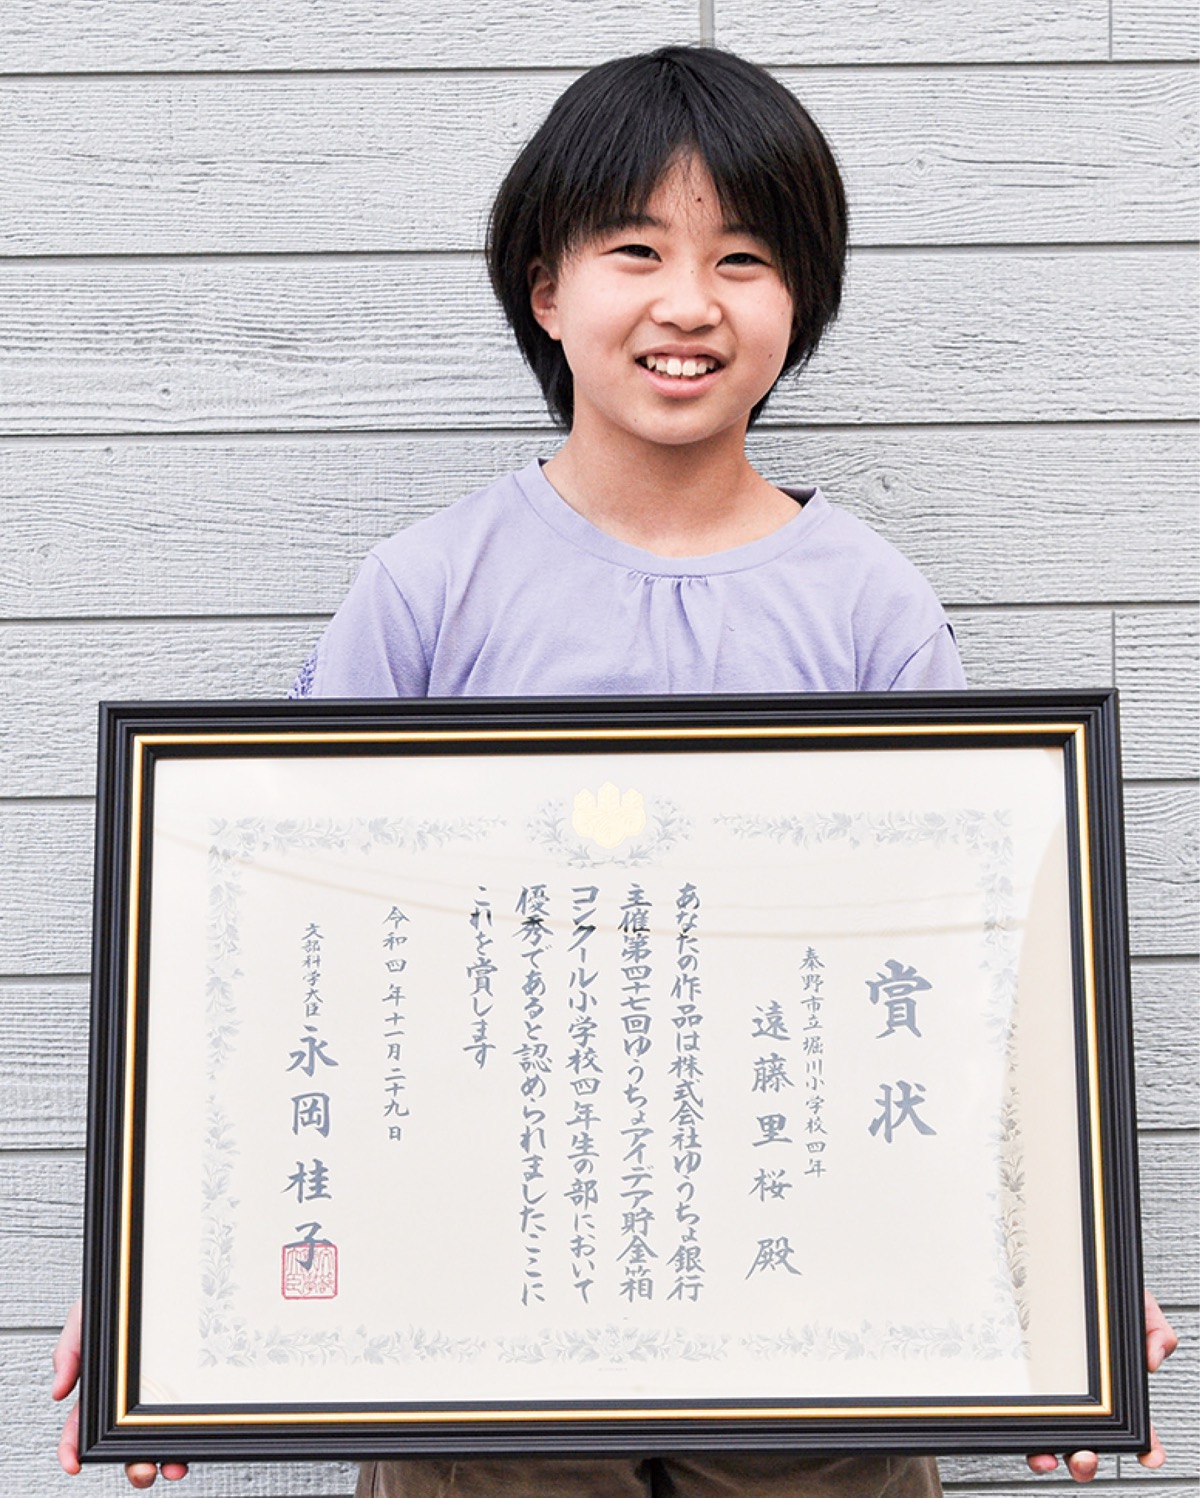 賞状
秦野市立堀川小学校四年
遠藤里桜殿
あなたの作品は株式会社ゆうちょ銀行
主催第四十七回ゆうちょアイデア貯金箱
コンクール小学校四年生の部において
優秀であると認められましたここに
これを賞します
令和四年十一月二十九日
文部科学大臣 永岡桂子